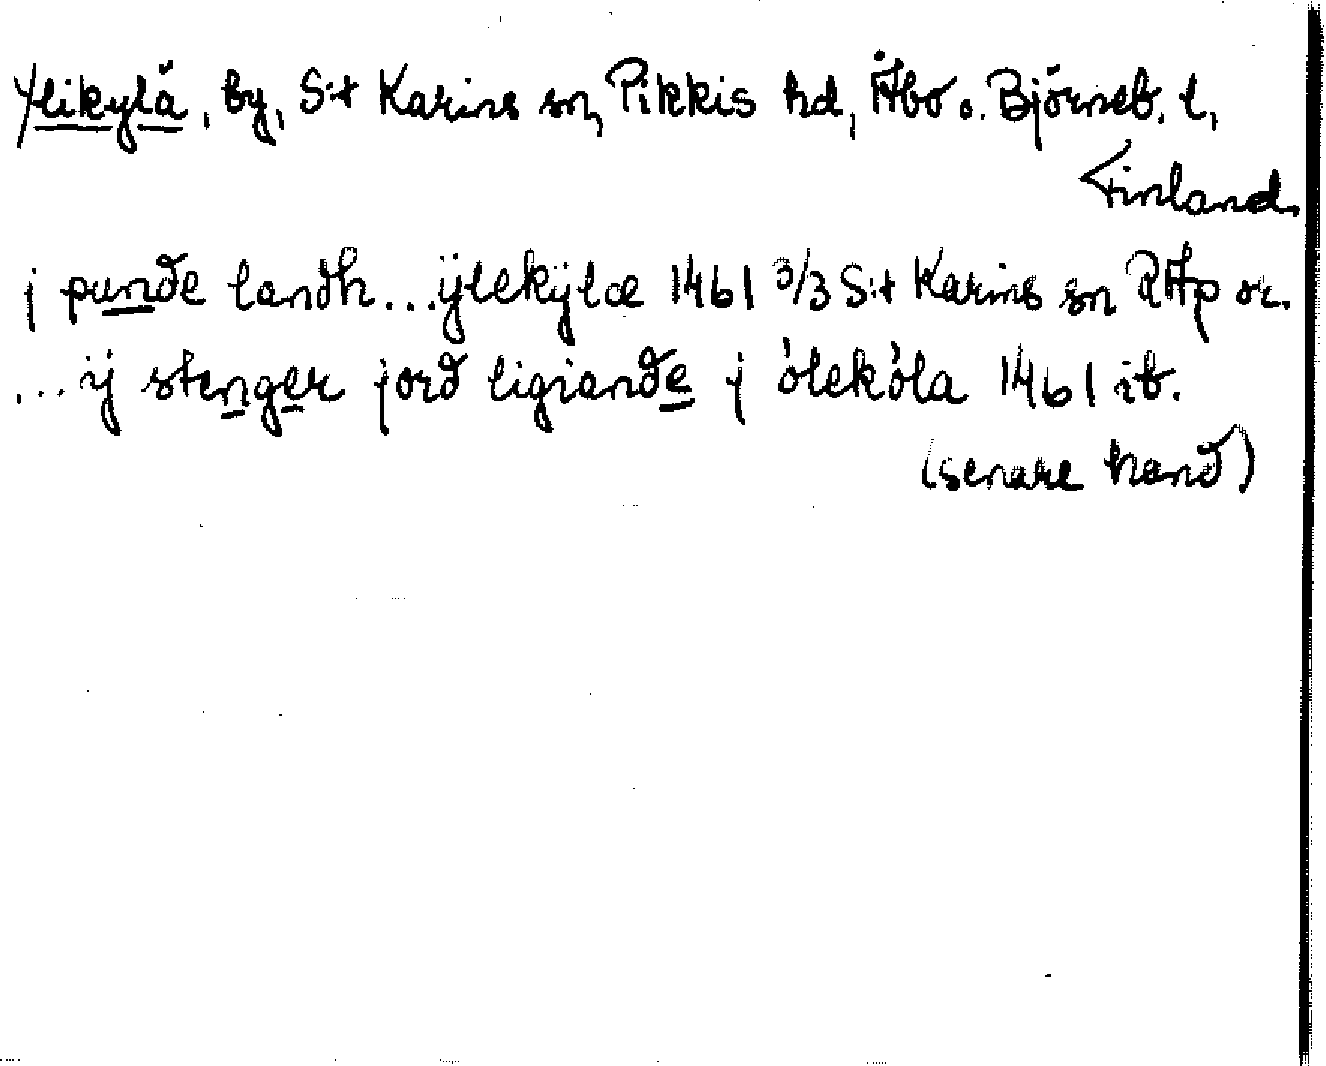 Ylikylä, by, S:t Karins sn, Pikkis hd, Åbo o. Björneb. l,
Finland.
j punde landh...ÿlekÿlæ 1461 3/3 S:t Karins sn RAp or.
...ij stenger jord ligiande j ólekóla 1461 ib.
(senare hand)